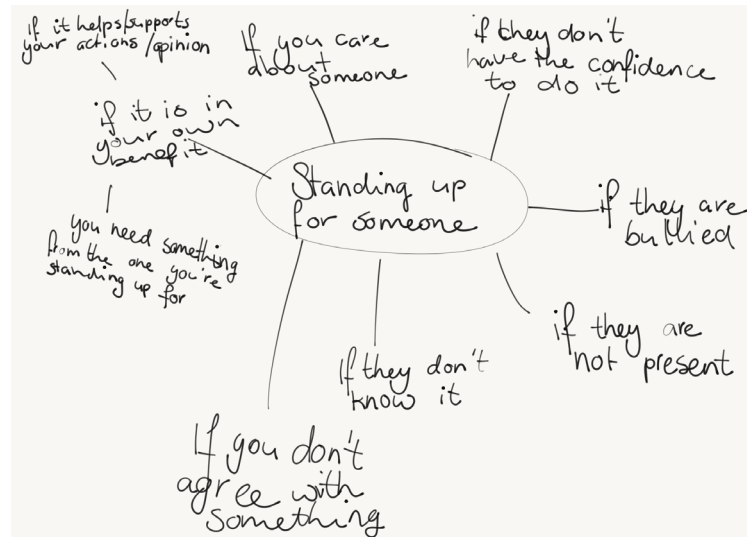 if it helps/supports
your actions/opinion
if it is in
your own
benefit
you need something
from the one you're
standing up for
If you care
about
someone
if they don't
have the confidence
to do it
Standing up
for someone
if they are
bullied
if they are
not present
If they don't
know it
If you don't
agree with
something